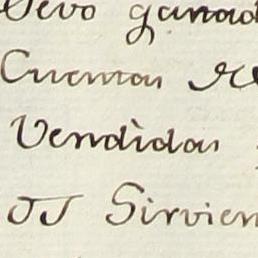 Devo ganad
Cuentas
Vendidas
Sirvien